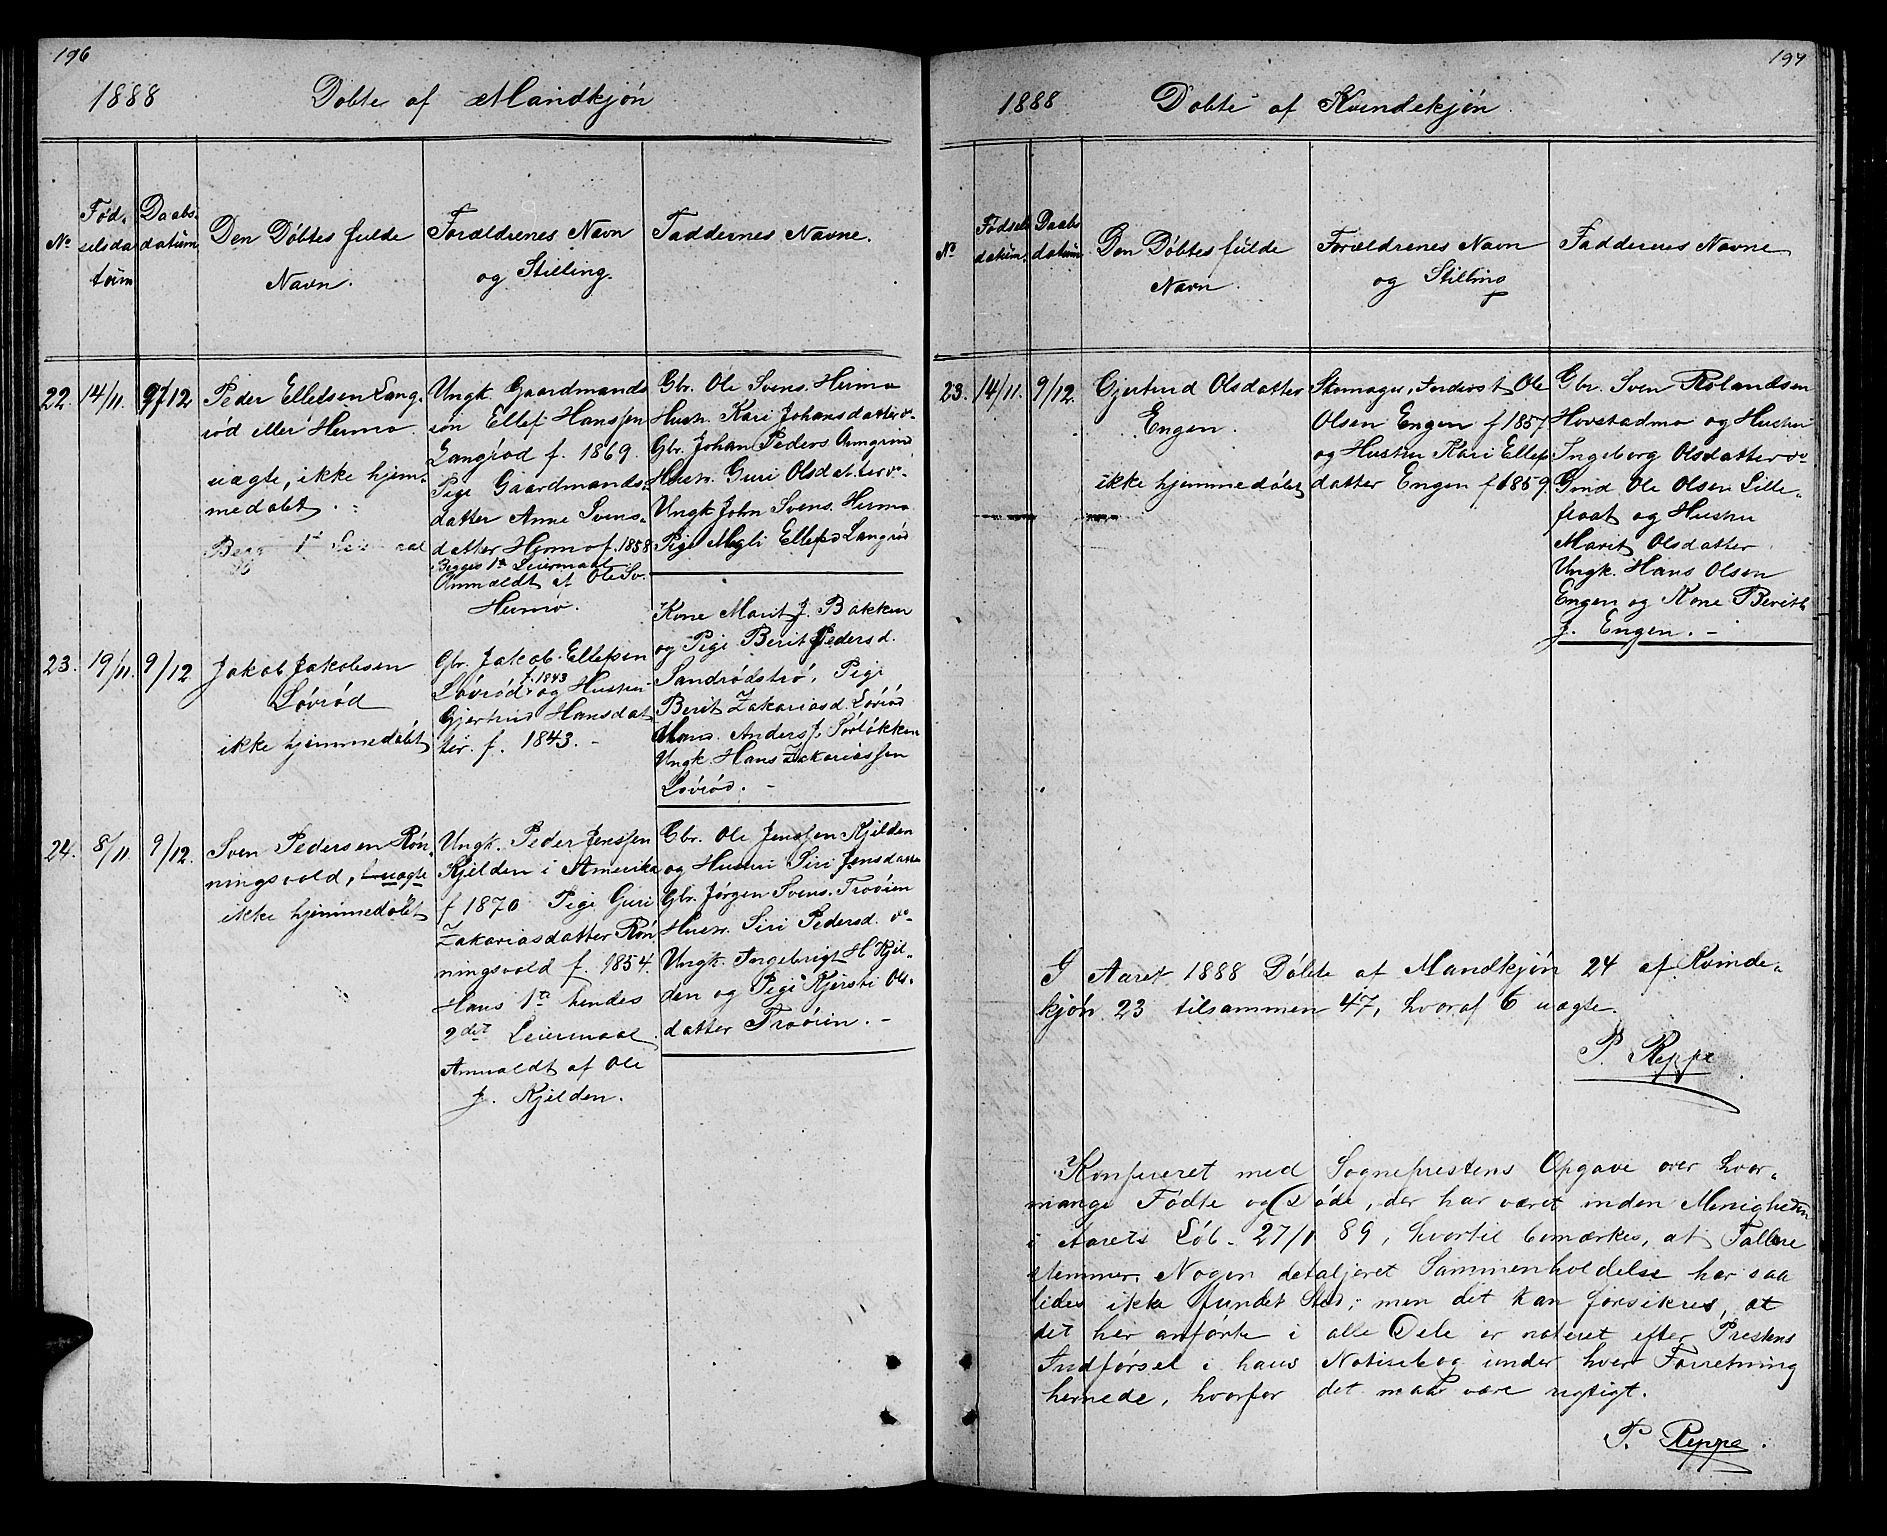 196
1888 Døbte af Mandkjøn
No Fød-selsdatum Daabsdatum Den Døbtes fulde Navn. Forældrenes Navn og Stilling. Faddernes Navne.
22. 14/11. 9/12
Peder Ellefsen Lang-
rød eller Hermo
uægte, ikke hjem-
medøbt.
Ungk. Gaardmands
søn Ellef Hanssen
Langrød f. 1869.
Pige Gaardmands-
datter Anne Svens-
datter Hermo f. 1858
Begges 1ste Leiermaal
Anmældt af Ole Sv.
Hermo.
Gbr. Ole Svens. Hermo
Hustr. Kari Johansdatter do
Gbr. Johan Peders.
Hustr. Guri Olsdatter do
Ungk. John Svens. Hermo
Pige Ellefsd Langrød
23. 19/11. 9/12
Jakob Jakobsen
Løvrød
ikke hjemmedøbt
Gbr. Jakob Ellefsen
Løvrød f. 1843 og Hustru
Gjertrud Hansdat
ter. f. 1843. -
Kone Marit J. Bakken
og Pige Berit Pedersd.
Sandrødstrø, Pige
Berit Zakariasd. Løvrød
Anders J. Sørløkken
Ungk. Hans Zakariassen
Løvrød. -
24. 8/11. 9/12.
Sven Pedersen Røn-
ningsvold, uægte
ikke hjemmedøbt
Ungk. Peder Jenssen
Kjelden i Amerika
f 1870 Pige Guri
Zakariasdatter Røn
ningsvold f. 1854.
Hans 1ste hendes
2det Leiermaal.
Anmældt af Ole
J. Kjelden.
Gbr. Ole Jenssen Kjelden
og Hustru Siri Jensdatter
Gbr. Jørgen Svens. Trøøien
Hustr. Siri Pedersd. do-
Ungk. Ingebrigt H Kjel-
den og Pige Kjersti Ols-
datter Trøøien. -
197
1888 Døbte af Kvindekjøn.
No Fødselsdatum. Daabsdatum Den Døbtes fulde Navn. Forældrenes Navn og Stilling Faddernes Navne
23. 14/11. 9/12.
Gjertrud Olsdatter
Engen.
ikke hjemmedøbt
Skomager, Inderst Ole
Olsen Engen f 1857
og Hustru Kari Ellefs
datter Engen f. 1859.
Gbr. Sven Rolandsen
Hovstadmo og Hustru
Ingeborg Olsdatter do
Gmd. Ole Olsen Lille-
float og Hustru
Marit Olsdatter.
Ungk. Hans Olsen
Engen og Kone Berith
J. Engen. -
I Aaret 1888 Døbte af Mandkjøn 24 af Kvinde-
kjøn 23 tilsammen 47, hvoraf 6 uægte.
P. Reppe
Konfereret med Sogneprestens Opgave over hvor-
mange Fødte og Døde, der har været inden Menigheden
i Aarets Løb. 27/1 89, hvortil bemærkes, at Tallene
stemmer. Nogen detaljeret Sammenholdelse har saa
ledes ikke fundet Sted; men det kan forsikres, at
det her anførte i alle Dele er noteret efter Prestens
Indførsel i hans Notisebog under hver Forretning
hernede, hvorfor det maa være rigtigt.
P. Reppe.